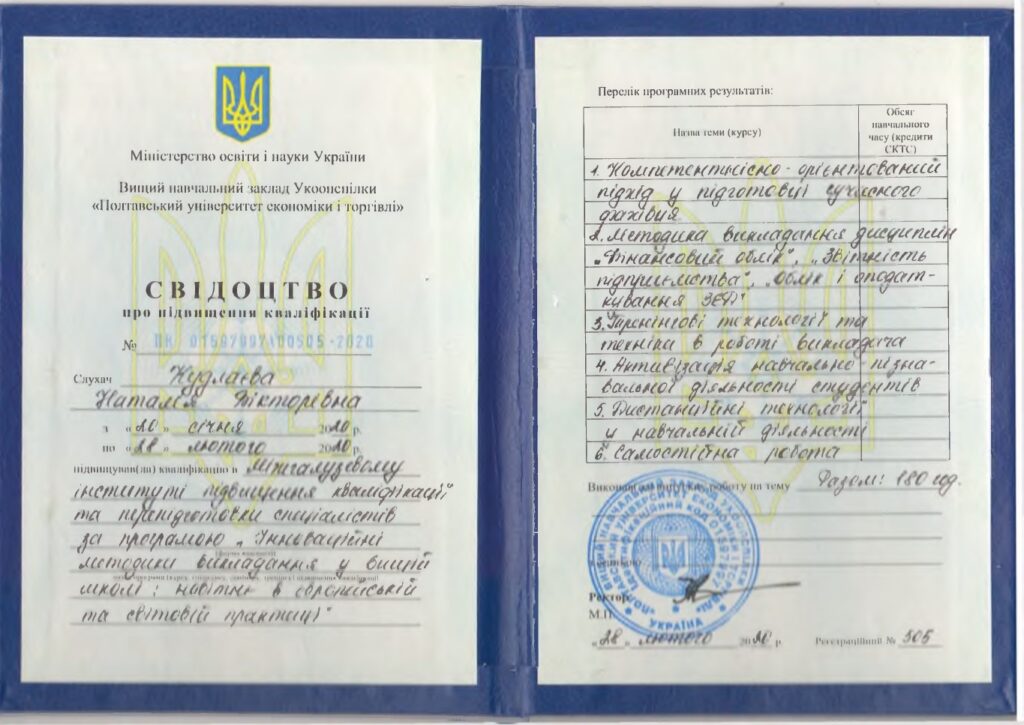 Міністерство освіти і науки України
Вищий навчальний заклад Укоопспілки
«Полтавський університет економіки і торгівлі»
СВІДОЦТВО
про підвищення кваліфікації
№ ПК 01597997/00505-2020
Слухач Кудлаєва
Наталія Вікторівна
з «20» січня 2020 р.
по «28» лютого 2020 р.
підвищував(ла) кваліфікацію в Міжгалузевому
інституті підвищення кваліфікації
та перепідготовки спеціалістів
за програмою „Інноваційні
методики викладання у вищій
школі: новітнє в європейській
та світовій практиці"
Перелік програмних результатів:
Назва теми (курсу)
Обсяг
навчального
часу (кредити
ЄКТС)
1. Компетентнісно-орієнтований
підхід у підготовці сучасного
фахівця
2. Методика викладання дисциплін
„Фінансовий облік", „Звітність
підприємства", „Облік і оподат-
кування ЗЕД"
3. Тренінгові технології та
техніка в роботі викладача
4. Активізація навчально-пізна-
вальної діяльності студентів
5. Дистанційні технології
у навчальній діяльності
6. Самостійна робота
роботу на тему Разом: 180 год.
Ректор
М.П.
«28» лютого 2020 р. Реєстраційний № 505
УКРАЇНА